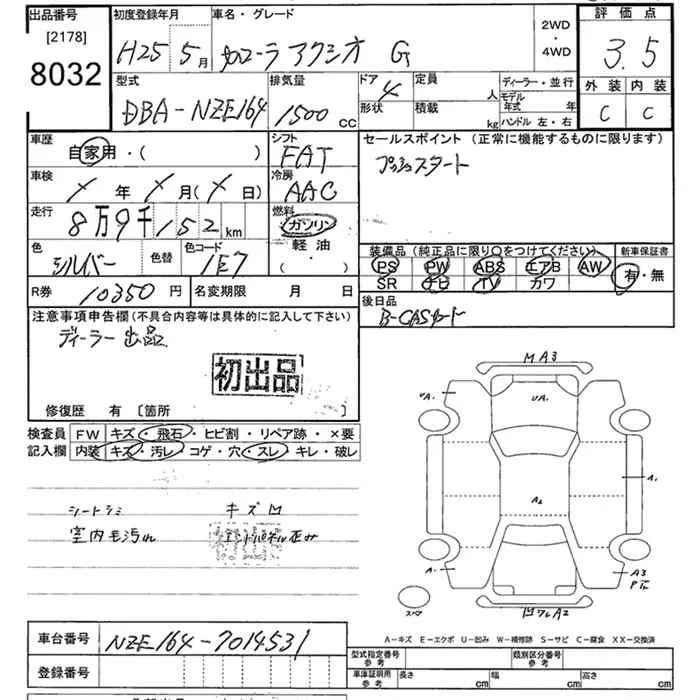 出品番号 初度登録年月 車名・グレード 2WD・4WD 評価点
[2178]
8032
H25 5月 カローラ アクシオ G 3.5
型式 排気量 ドア 定員 人 ディーラー・並行 外装 内装
DBA-NZE164 1500 CC 4 形状 積載 kg モデル年式 年 ハンドル 左・右 C C
車歴 自家用・( ) シフト FAT セールスポイント (正常に機能するものに限ります)
プッシュスタート
車検 / 年 / 月(/ 日) 冷房 AAC
走行 8万9千152 km 燃料 ガソリン
軽油
・( )
色 シルバー 色替 色コード 1E7
装備品 (純正品に限り〇をつけてください) 新車保証書
PS PW ABS エアB AW 有・無
SR ナビ TV カワ
R券 10350 円 名変期限 月 日
後日品
B-CASカード
注意事項申告欄(不具合内容等は具体的に記入して下さい)
ディーラー出品
初出品
修復歴 有 [箇所
検査員 FW キズ・飛石・ヒビ割・リペア跡・×要
記入欄 内装 キズ・汚レ・コゲ・穴・スレ・キレ・破レ
シートシミ キズ凹
室内毛汚れ
MA3
UA1
A1
A2
A1
A1
A3
スペア
凹ワレA2
A－キズ E－エクボ U－凹み W－補修跡 S－サビ C－腐食 XX－交換済
車台番号 NZE164-7014531
登録番号
型式指定番号 参考 類別区分番号 参考
車庫証明用 参考 長さ cm 幅 cm 高さ cm